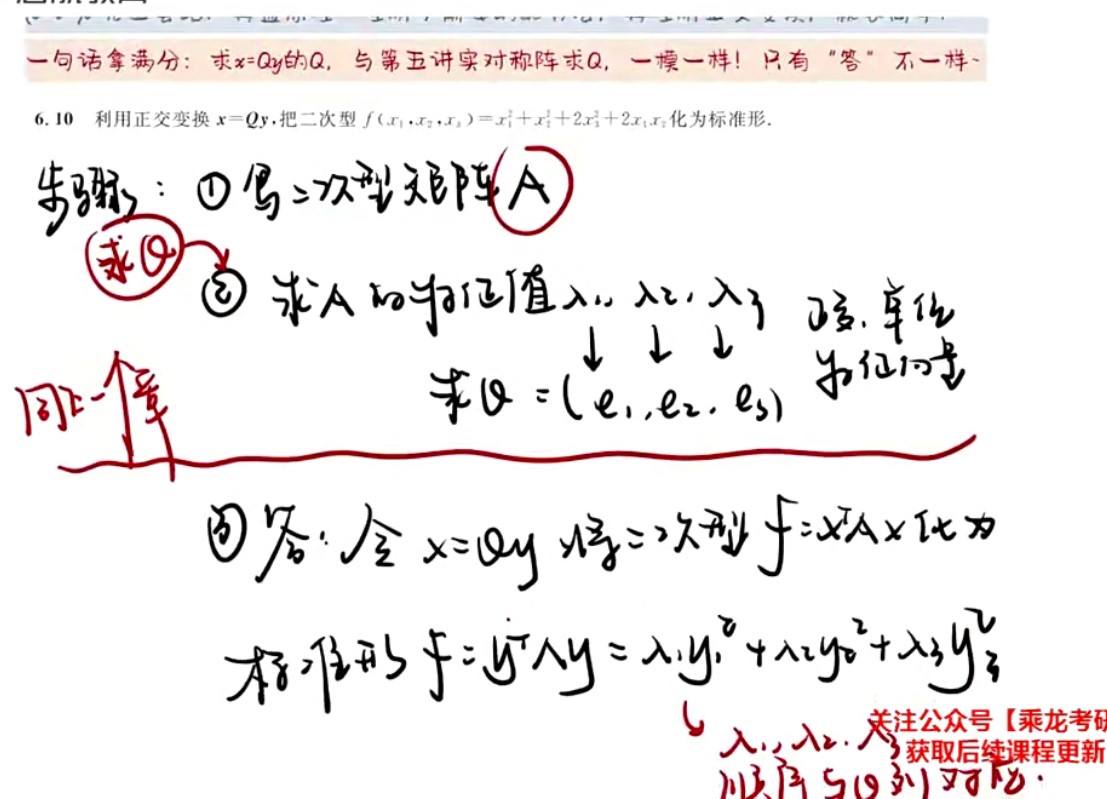 一句话拿满分：求x=Qy的Q，与第五讲实对称阵求Q，一模一样！只有“答”不一样~
6.10 利用正交变换 x=Qy,把二次型 f(x₁,x₂,x₃)=x₁²+x₂²+2x₃²+2x₁x₂化为标准形.
步骤：① 写二次型矩阵A
求Q
② 求A的特征值λ₁, λ₂, λ₃ 正交、单位
↓ ↓ ↓ 特征向量
求Q=(e₁,e₂,e₃)
同上一章
③ 答：令 x=Qy 将二次型 f=xᵀAx 化为
标准形 f=yᵀΛy=λ₁y₁²+λ₂y₂²+λ₃y₃²
λ₁,λ₂,λ₃
顺序与Q列对应.
关注公众号【乘龙考研
获取后续课程更新